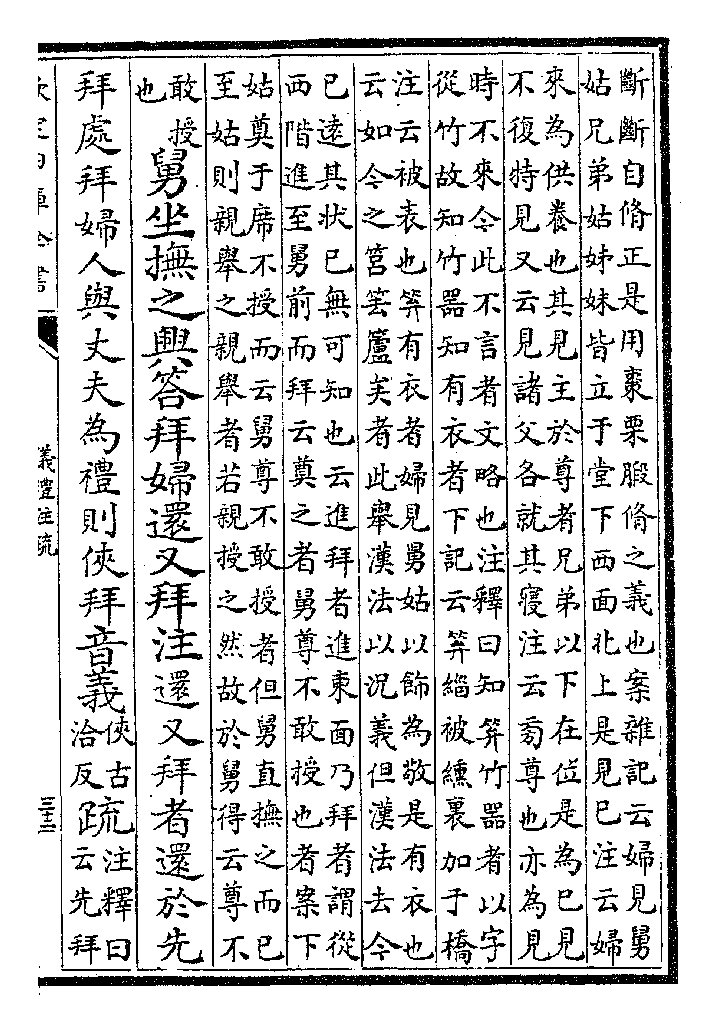 斷斷自脩正是用棗栗腶脩之義也案雜記云婦見舅
姑兄弟姑姊妹皆立于堂下西面北上是見已注云婦
來為供養也其見主於尊者兄弟以下在位是為已見
不復特見又云見諸父各就其寢注云旁尊也亦為見
時不來今此不言者文略也注釋曰知笲竹器者以字
從竹故知竹器知有衣者下記云笲緇被纁裏加于橋
注云被表也笲有衣者婦見舅姑以飾為敬是有衣也
云如今之筥蘆矣者此舉漢法以況義但漢法去今
已遠其狀已無可知也云進拜者進東面乃拜者謂從
西階進至舅前而拜云奠之者舅尊不敢授也者案下
姑奠于席不授而云舅尊不敢授者但舅直撫之而已
至姑則親舉之親舉者若親授之然故於舅得云尊不
敢授
也
舅坐撫之興答拜婦還又拜注還又拜者還於先
拜處拜婦人與丈夫為禮則俠拜音義俠古洽反疏注釋曰云先拜
欽定四庫全書
儀禮注疏
三十二